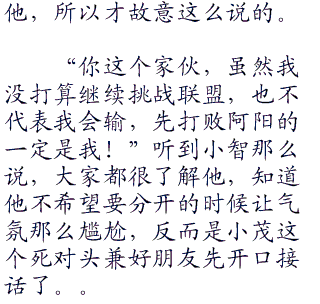 他，所以才故意这么说的。
“你这个家伙，虽然我
没打算继续挑战联盟，也不
代表我会输，先打败阿阳的
一定是我！”听到小智那么
说，大家都很了解他，知道
他不希望要分开的时候让气
氛那么尴尬，反而是小茂这
个死对头兼好朋友先开口接
话了。。